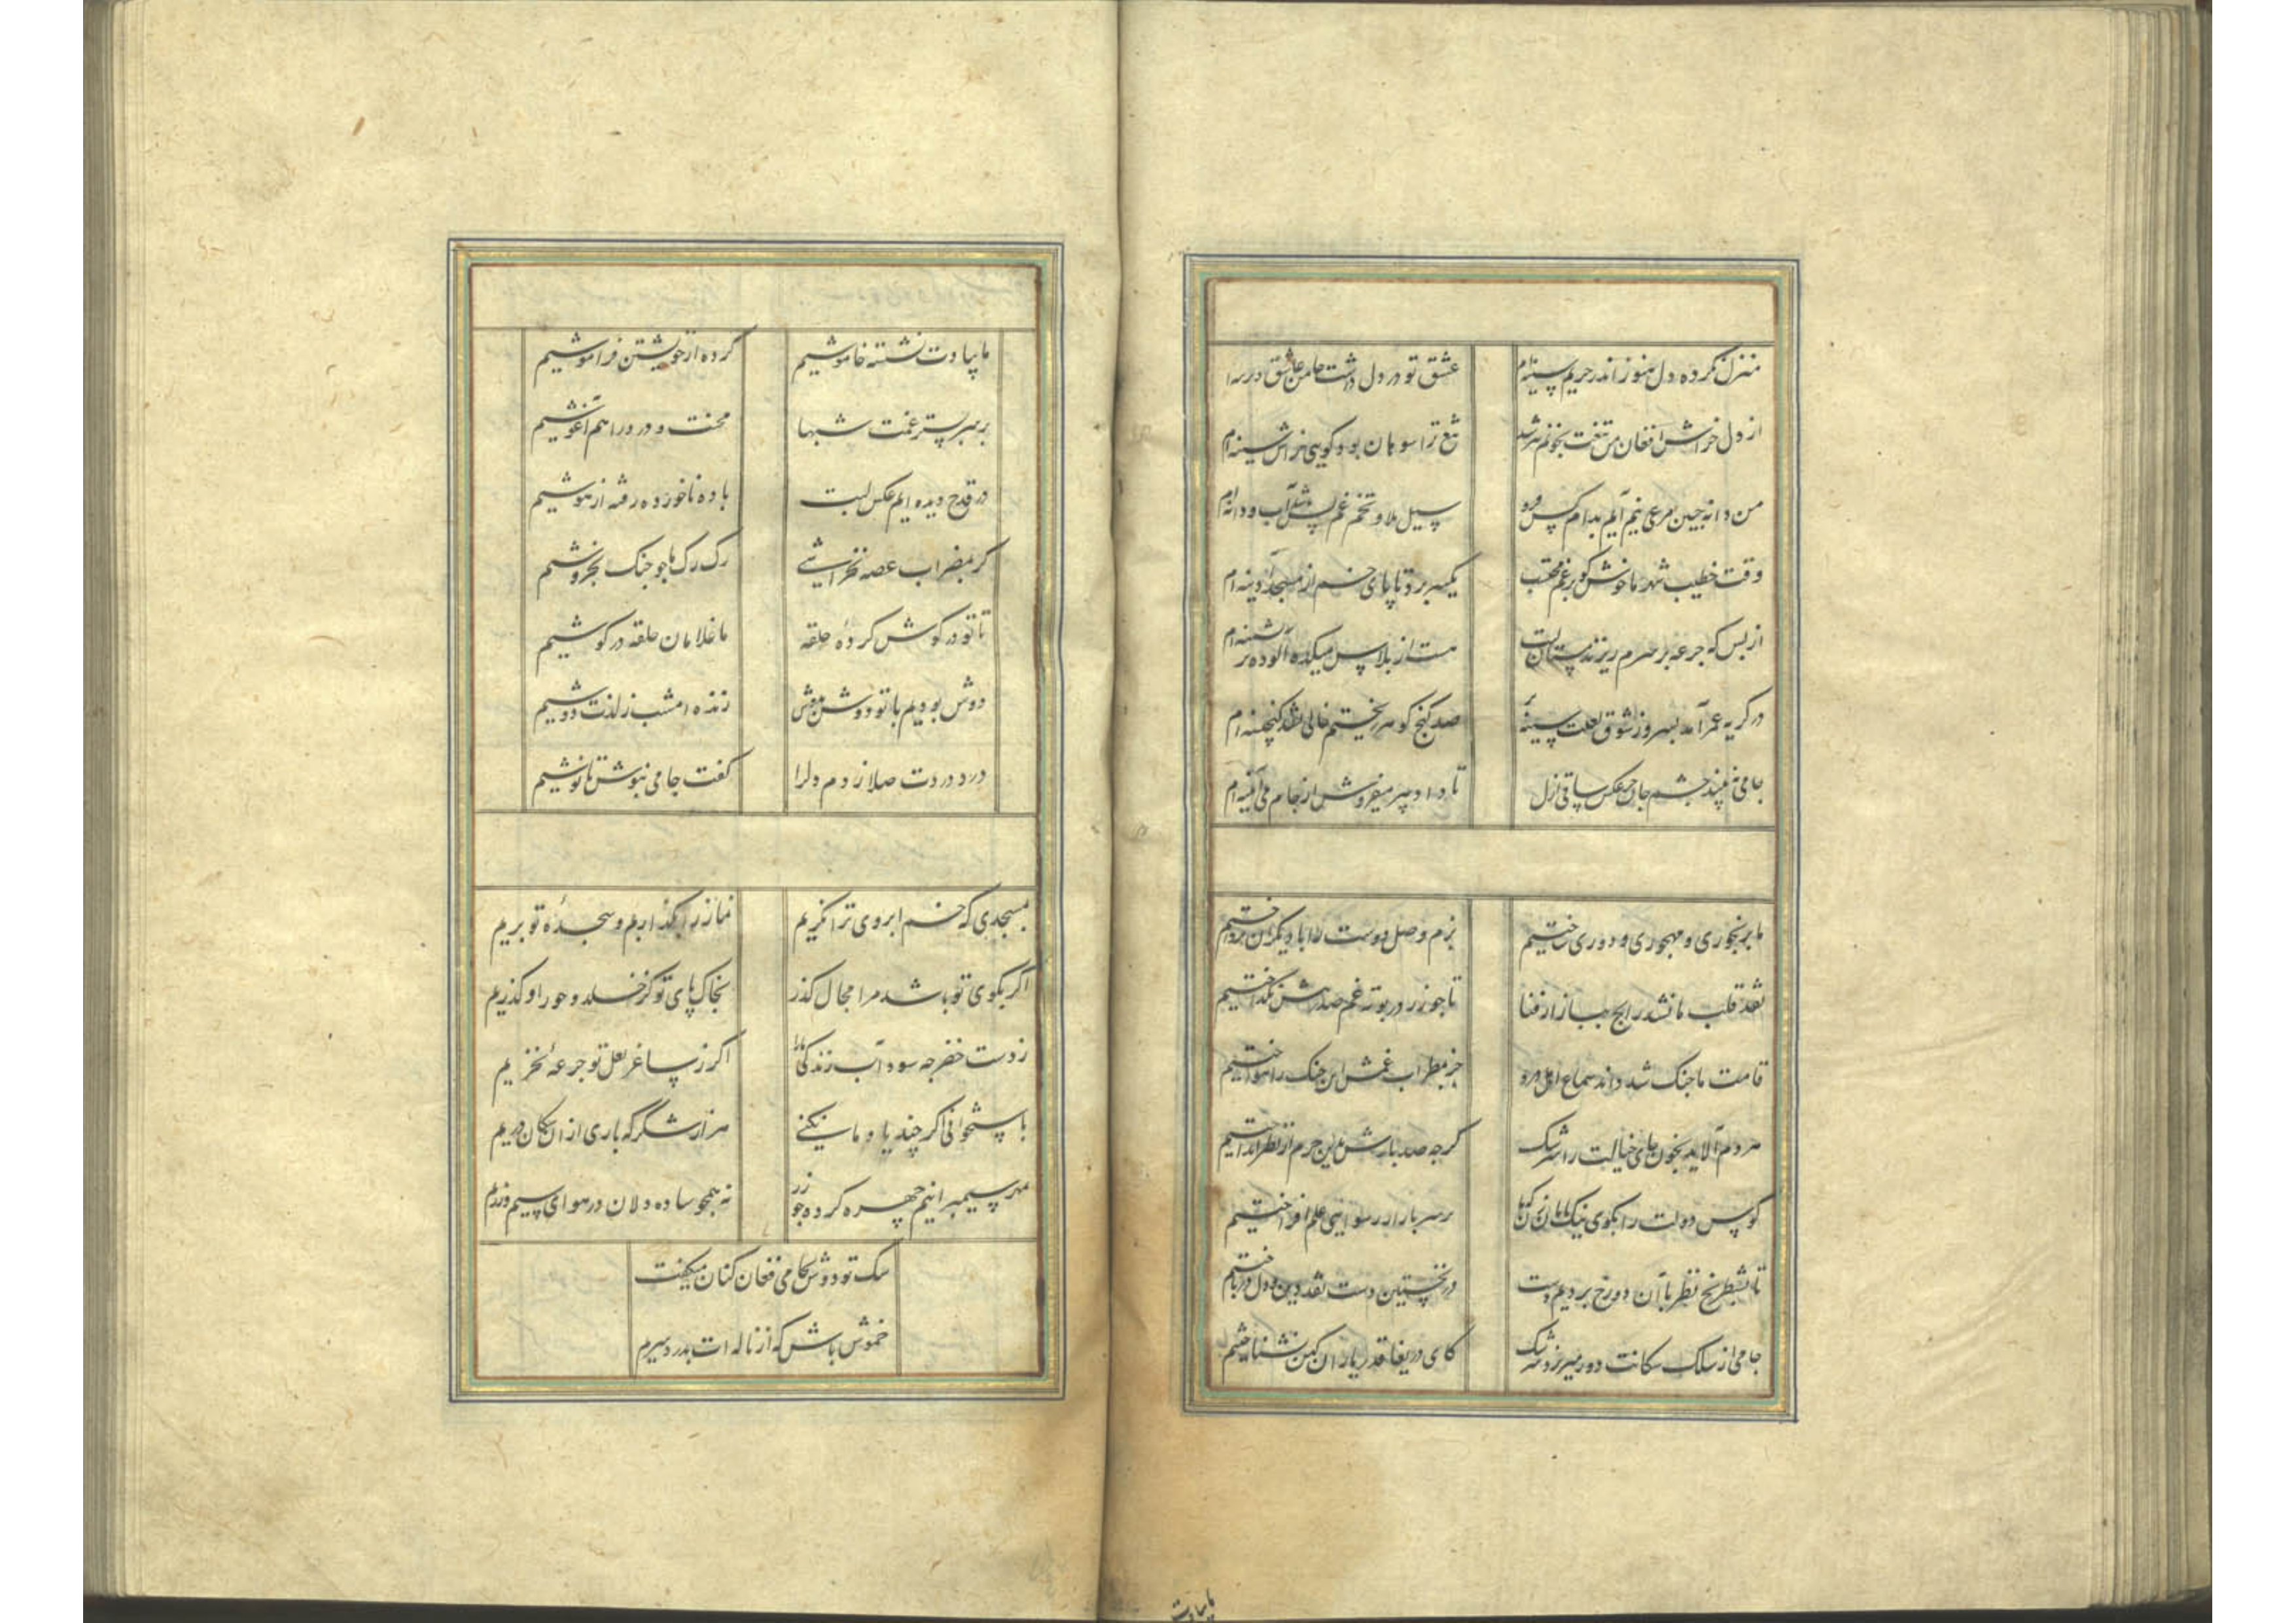 منزل نکرده دل هنوز اندر حریم سینه‌ام
عشق تو در دل داشت جا من عاشق دیرینه‌ام
از دل خراش افغان من تیغت بخونم تیز شد
تیغ ترا سوهان بود گویی خراش سینه‌ام
من دانه چین مرغی نیم آیم بدام کس فرو
سیل بلا و تخم غم بس آب و دانه‌ام
وقت خطیب شهر ما خوش کو برغم محتسب
یکسر برد تا پای خم از مسجد آدینه‌ام
از بس که جرعه بر سرم ریزند مستان لبت
هست از پلاس میکده آلوده‌تر پشمینه‌ام
در گریه عمر آمد بسر وز شوق لعلت سینه پر
صد گنج گوهر ریختم خالی نشد گنجینه‌ام
جامی نبیند چشم جان جز عکس ساقی ازل
تا داد پیر میفروش از جام می آیینه‌ام
ما برنجوری و مهجوری و دوری ساختیم
بزم وصل دوست را با دیگران پرداختیم
نقد قلب ما نشد رایج ببازار فنا
تا چو زر در بوته غم صد رهش نگداختیم
قامت ما چنگ شد داند سماع اهل درد
جز بمضراب غمش این چنگ را ننواختیم
مردم آلاید بخون جای خیالت را سرشک
گرچه صد بارش بدین جرم از نظر انداختیم
کوس دولت را بکوی نیکنامان زن که ما
بر سر بازار رسوایی علم افراختیم
تا بشطرنج نظر با آن دو رخ بردیم دست
در نخستین دست نقد دین و دل در باختیم
جامی از سلک سگانت دور میریزد سرشک
کای دریغا قدر یاران کهن نشناختیم
ما بیادت نشسته خاموشیم
کرده از خویشتن فراموشیم
بر سر بستر غمت شبها
محنت و درد را هم آغوشیم
در قدح دیده ایم عکس لبت
باده ناخورده رفته از هوشیم
گر بمضراب غصه نخراشی
رگ رگ ما چو چنگ بخروشیم
تا تو در گوش کرده حلقه
ما غلامان حلقه در گوشیم
دوش بودیم با تو دوش بدوش
زنده امشب ز لذت دوشیم
درد دردت صلا زدم دلرا
گفت جامی بنوش تا نوشیم
بمسجدی که خم ابروی ترا نگریم
نماز را بگذاریم و سجده تو بریم
اگر بکوی تو باشد مرا مجال گذر
بخاک پای تو کز خلد و حور او گذریم
ز دست خضر چه سود آب زندگی ما را
اگر ز ساغر لعل تو جرعه نخوریم
باستخوانی اگر چند یاد ما نکنی
هزار شکر که باری از ان سگان دریم
بمهر سیمبرانیم چهره کرده چو زر
نه همچو ساده دلان در هوای سیم و زریم
سگ تو دوش بجامی فغان کنان میگفت
خموش باش که از ناله‌ات بدرد سریم
ما بیادت